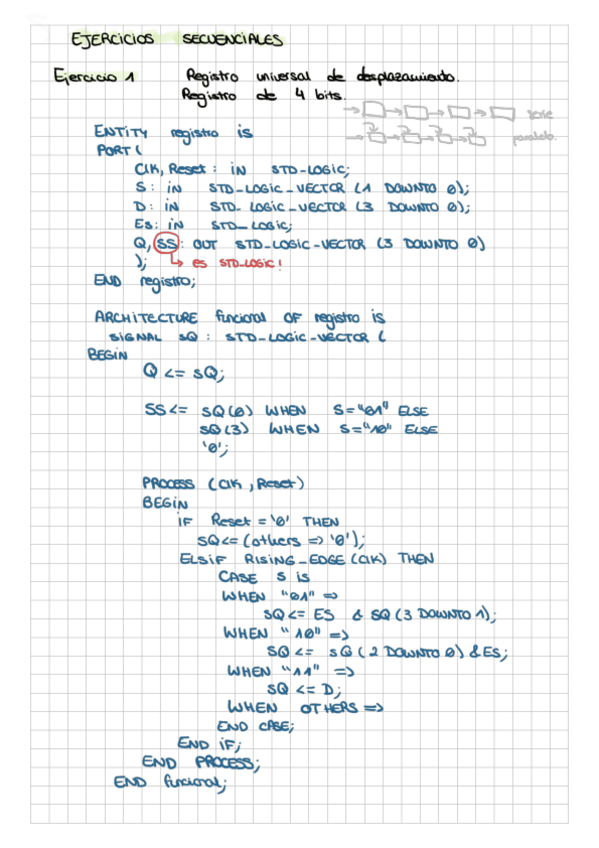 EJERCICIOS SECUENCIALES
Ejercicio 1 Registro universal de desplazamiento.
Registro de 4 bits.
serie
paralelo.
ENTITY registro is
PORT (
Clk, Reset : IN STD-LOGIC;
S : IN STD-LOGIC-VECTOR (1 DOWNTO 0);
D : IN STD-LOGIC-VECTOR (3 DOWNTO 0);
Es : IN STD-LOGIC;
Q, SS : OUT STD-LOGIC-VECTOR (3 DOWNTO 0)
); ↳ es STD-LOGIC!
END registro;
ARCHITECTURE funcional OF registro is
SIGNAL sQ : STD-LOGIC-VECTOR (
BEGIN
Q <= sQ;
SS <= sQ(0) WHEN S="01" ELSE
sQ(3) WHEN S="10" ELSE
'0';
PROCESS (Clk, Reset)
BEGIN
IF Reset = '0' THEN
sQ <= (others => '0');
ELSIF RISING-EDGE (Clk) THEN
CASE S is
WHEN "01" =>
sQ <= ES & sQ (3 DOWNTO 1);
WHEN "10" =>
sQ <= sQ (2 DOWNTO 0) & ES;
WHEN "11" =>
sQ <= D;
WHEN OTHERS =>
END CASE;
END IF;
END PROCESS;
END funcional;